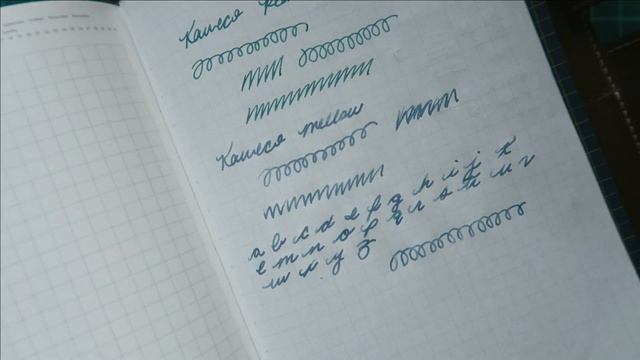 Kaweco
Kaweco mellow
a b c d e f g h i j k
l m n o p q r s t u v
w x y z